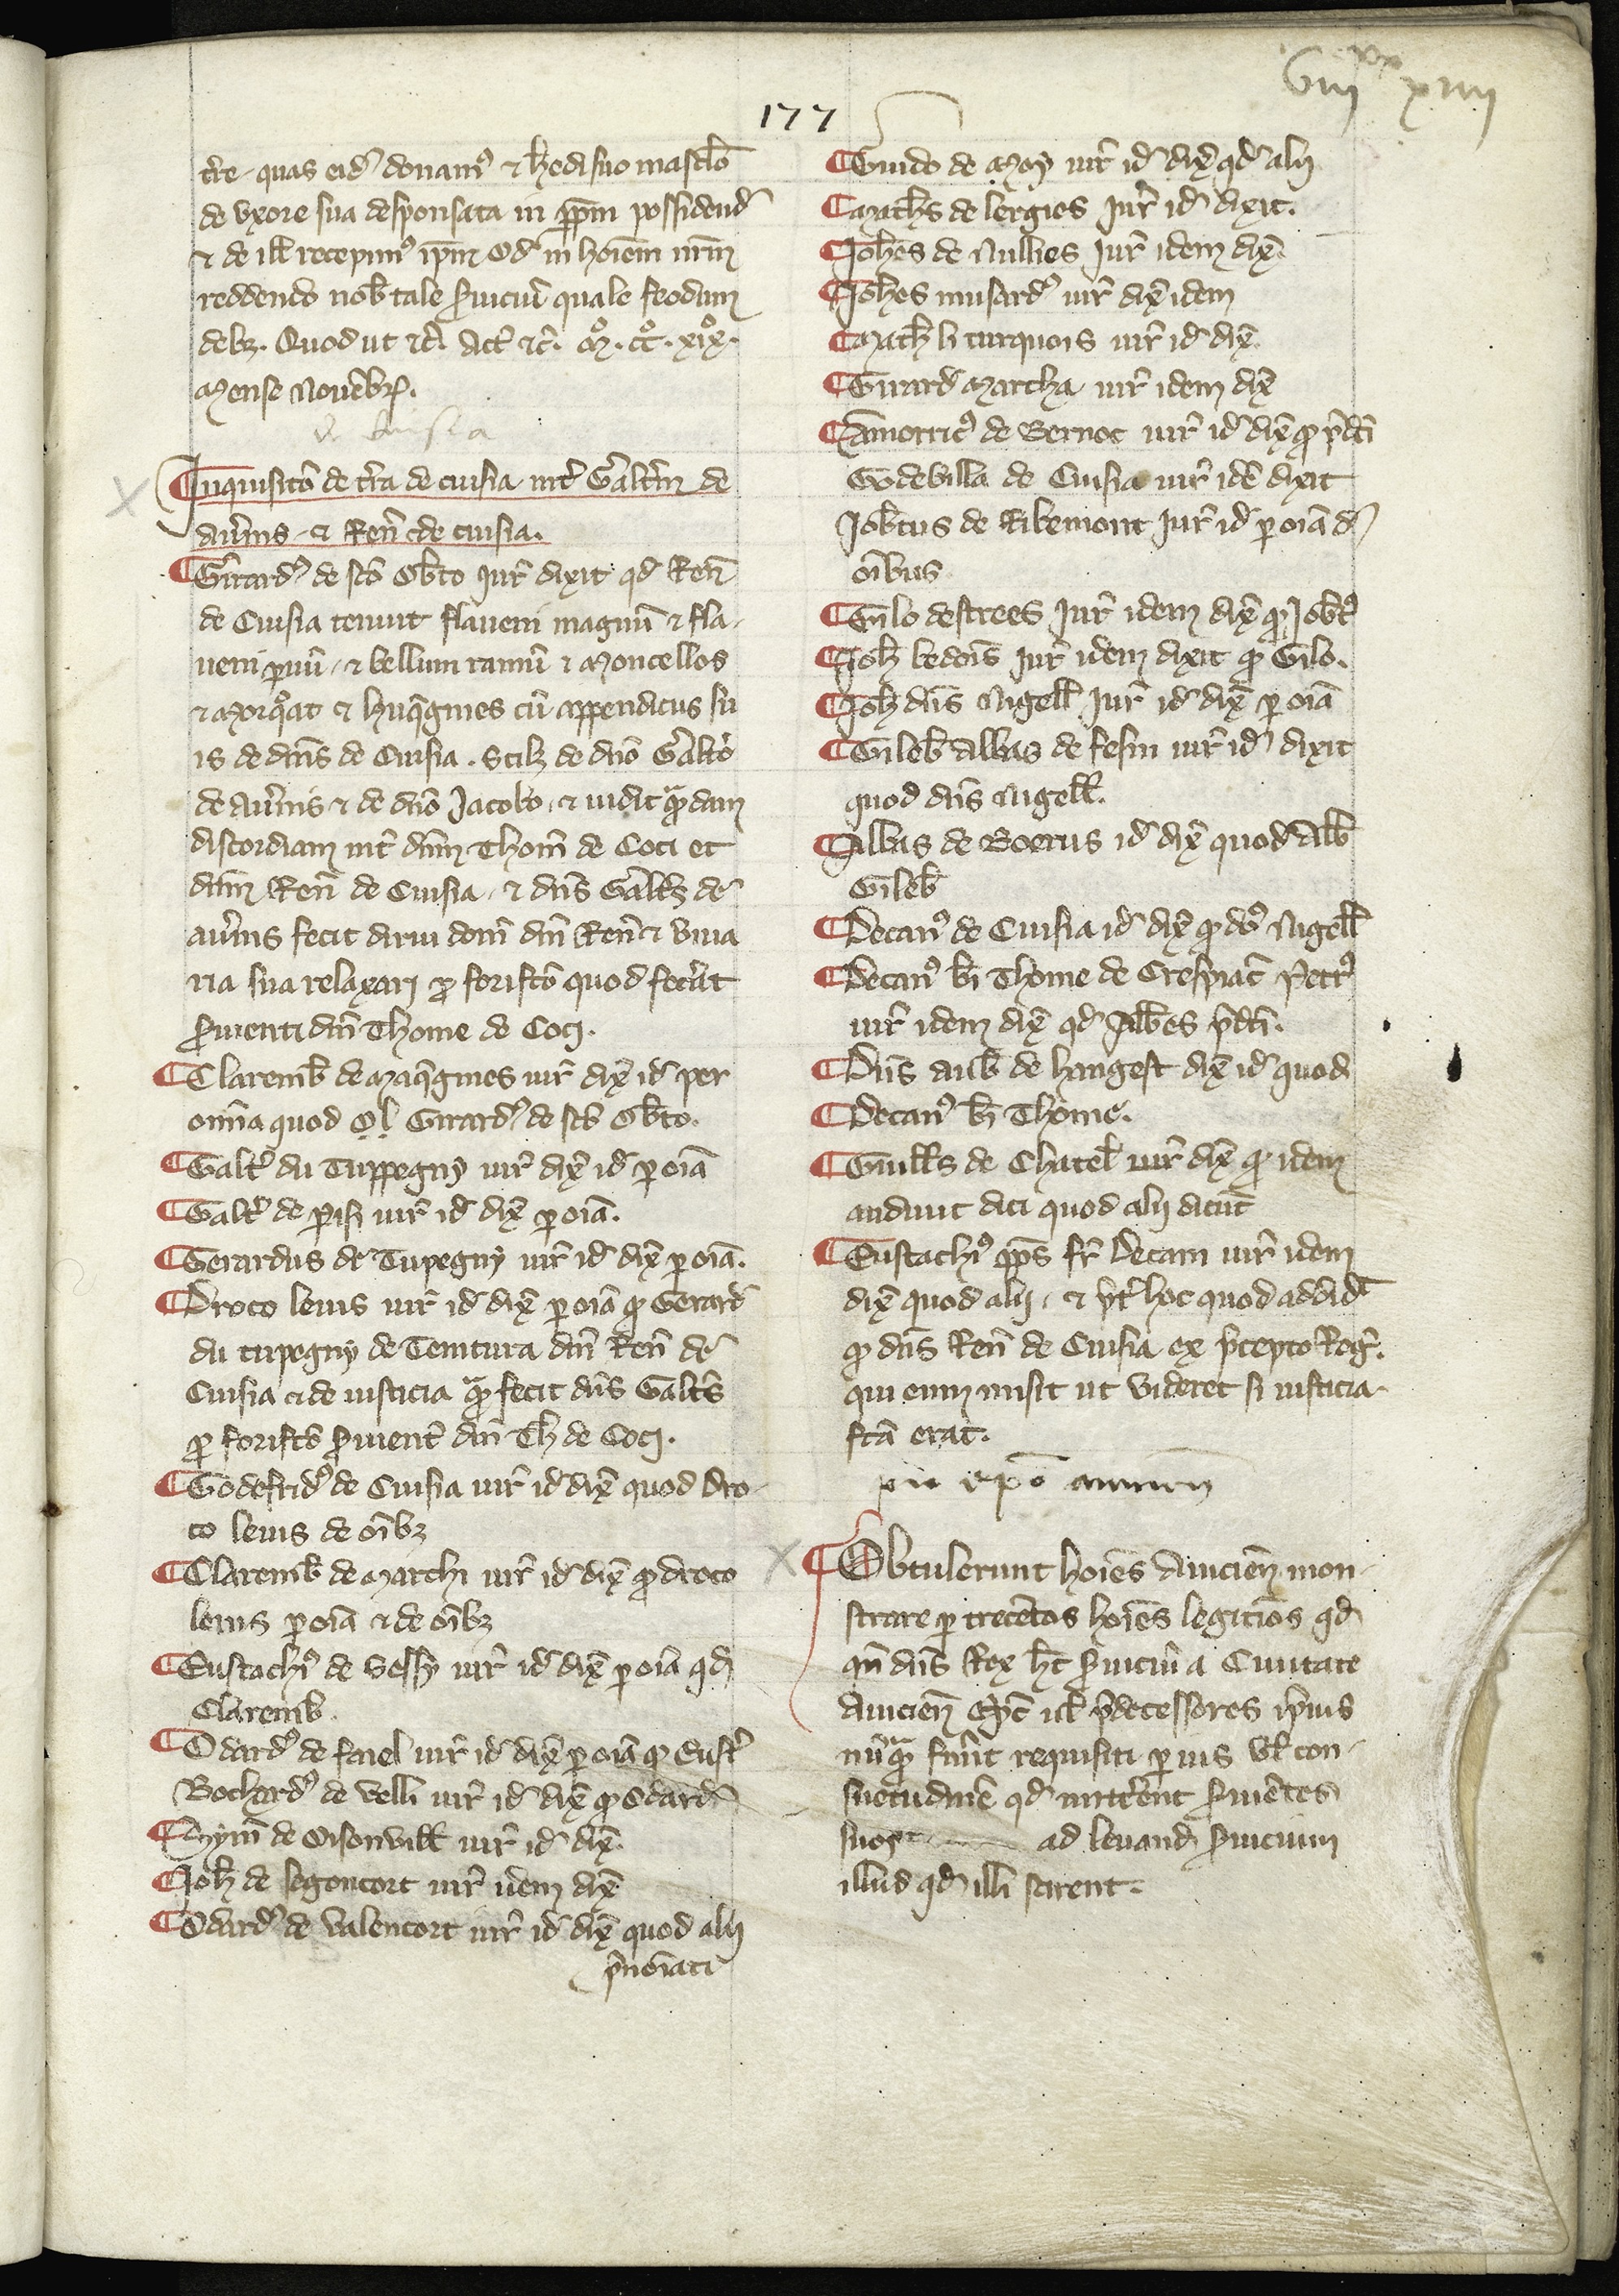 177
viij xx xiiij
t̃re. quas eid᷒ donam᷒ ⁊ h̃edi suo masc̃lo
de vxore sua desponsata in ꝑpm̃ possidend᷒
⁊ de ill̃ recepim᷒ ip̃m Od᷒ in hoiẽm nr̃m
reddendo nob̃ tale s̃uiciũ quale feodum
debꝫ. Quod ut ⁊c̃. Act̃ ⁊c̃. m̊. cc̊. xix̊.
Mense Nouẽbr̃.
de Cuisia
Inquisic̃o de t̃ra de cuisia int̃ Galt̃m de
au̾ins. ⁊ Ren̾ de cuisia.
Girard᷒ de sc̃o Ob̃to Iur̾ dixit qd᷒ Ren̾
de Cuisia tenuit flaueni magnũ ⁊ fla-
ueni ꝑuũ. ⁊ bellum ramũ ⁊ Moncellos
⁊ Morq̊at ⁊ huq̃gnies cũ appendiciis su
is de dñis de Cuisia. Scilꝫ de dño Galt̃o
de au̾ins ⁊ de dño Jacobo. ⁊ uidit q̃dam
discordiam int̃ dñm Thom̃ de Coci et
dñm Ren̾ de Cuisia. ⁊ dñs Galt̃s de
au̾ins fecit dirui dom̃ dñi Ren̾ ⁊ viua
ria sua relaxari ꝓ forisf̃co quod fec̾at
s̾uienti dñi Thome de Coci.
Claremb̃ de maq̃gnies iur̾ dix̾ id᷒ per
om̃ia quod Girard᷒ de sc̃o Ob̃to.
Galt̾ du Tuppegny iur̾ dix̾ id᷒ ꝑ oĩa
Galt̾ de ꝑisi iur̾ id᷒ dix̾ ꝑ oĩa.
Gerardus de Tupegny iur̾ id᷒ dix̾ ꝑ oĩa.
Droco leuis iur̾ id᷒ dix̾ ꝑ oĩa qd᷒ Gerard᷒
du tupegny de Tenitura dñi Ren̾ de
Cuisia ⁊ de iusticia q̃m fecit dñs Galt̃s
ꝓ forisf̃co s̾uient̾ dñi Th̃ de Coci.
Godefrid᷒ de Cuisia iur̾ id᷒ dix̾ quod dro-
co leuis de oĩbꝫ
Claremb̃ de Marchi iur̾ id᷒ dix̾ qd᷒ droco
leuis ꝑ oĩa ⁊ de oĩbꝫ
Eustach᷒ de vessy iur̾ id᷒ dix̾ ꝑ oĩa qd᷒
Claremb̃.
Odard᷒ de faiel iur̾ id᷒ dix̾ ꝑ oĩa qd᷒ Eust̾
Bochard᷒ de velli iur̾ id᷒ dix̾ qd᷒ Odard᷒
Sym̃ de Oisonuill̃ iur̾ id᷒ dix̾.
Joh̃ de segoncort iur̾ idem dix̾
Odard᷒ de valencort iur̾ id᷒ dix̾ quod alij
p̃noĩati
Guido de Moy iur̾ id᷒ dix̾ qd᷒ alij
Math̃s de lergies Iur̾ id᷒ dixit.
Joh̃es de Nullies Iur̾ idem dix̾.
Joh̃es musard᷒ iur̾ dix̾ idem
Math̃ li turquois iur̾ id᷒ dix̾.
Girard᷒ Marcha iur̾ idem dix̾
Amorric᷒ de Bernot iur̾ id᷒ dix̾ qd᷒ p̃dc̃i
Godebilla de Cuisia iur̾ idẽ dixit
Job̃tus de Ribemont Iur̾ id᷒ ꝑ oĩa d᷒
oĩbus
Gilo destrees Iur̾ idem dix̾ qd᷒ Job̃t᷒
Joh̃ bedoñs Iur̾ idem dixit qd᷒ Gilo.
Joh̃ dñs Nigell̃ Iur̾ id᷒ dix̾ ꝑ oĩa
Gileb̃ Abbas de fesm iur̾ id᷒ dixit
quod dñs Nigell̃.
Abbas de Boeries id᷒ dix̾ quod abb̃
Gileb̃
Decan᷒ de Cuisia id᷒ dix̾ qd᷒ dñs Nigell̃
Decan᷒ bi Thome de Crespiac̃ Petr᷒
iur̾ idem dix̾ qd᷒ Abb̃es p̃dc̃i.
Dñs aub̃ de hangest dix̾ id᷒ quod
Decan᷒ bi Thome.
Guill̃s de Chatel̃ iur̾ dix̾ qd᷒ idem
audiuit dici quod alij dicũt
Eustachi᷒ p̃p̃s fr̾ Decani iur̾ idem
dix̾ quod alij. ⁊ p̃t̾ hoc quod addid̾t
qd᷒ dñs Ren̾ de Cuisia ex p̃cepto Reg̾.
qui eum misit ut videret si iusticia
fc̃a erat.
Obtulerunt hoĩes Auicieñ mon-
strare ꝑ trecẽtos hoĩes legitiõs qd᷒
qñ dñs Rex h̃t s̾uiciũ a Ciuitate
Auicieñ Ep̃c uel p̃decessores ip̃ius
nũq̃m fũnt requisiti ꝑ ius vl̃ con-
suetudinẽ qd᷒ mitt̾ent s̾uiẽtes
suos ad leuand᷒ s̾uicium
illud qd᷒ illi scirent.